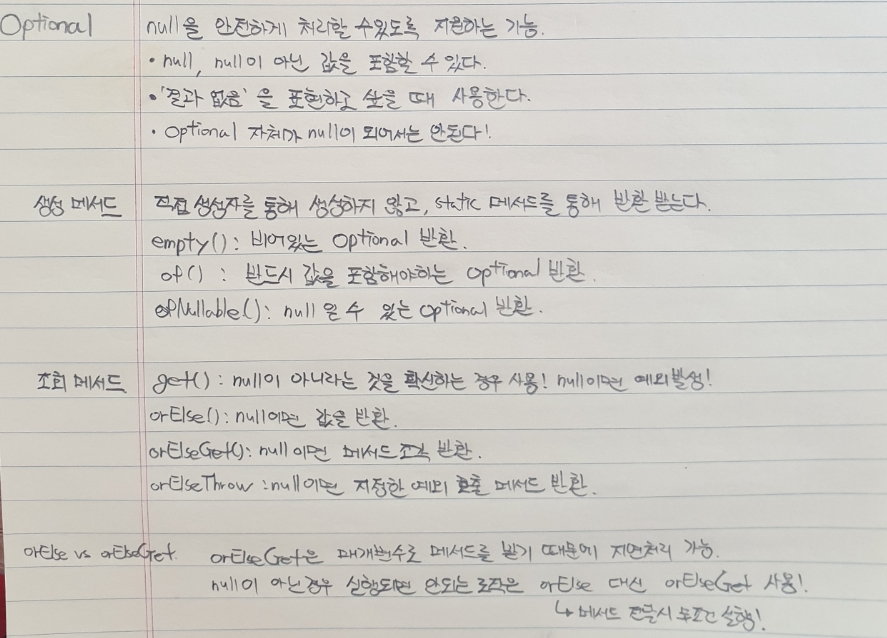 Optional null을 안전하게 처리할 수있도록 지원하는 기능.
• null, null이 아닌 값을 포함할 수 있다.
• '결과 없음' 을 표현하고 싶을 때 사용한다.
• Optional 자체가 null이 되어서는 안된다!
생성 메서드 직접 생성자를 통해 생성하지 않고, static 메서드를 통해 반환 받는다.
empty(): 비어있는 Optional 반환.
of() : 반드시 값을 포함해야하는 Optional 반환.
ofNullable(): null 일 수 있는 Optional 반환.
조회 메서드 get() : null이 아니라는 것을 확신하는 경우 사용! null이면 예외발생!
orElse(): null이면 값을 반환.
orElseGet(): null 이면 메서드 조각 반환.
orElseThrow : null이면 지정한 예외 호출 메서드 반환.
orElse vs orElseGet. orElseGet은 매개변수로 메서드를 받기 때문에 지연처리 가능.
null이 아닌경우 실행되면 안되는 로직은 orElse 대신 orElseGet 사용!
↳ 메서드 전달시 무조건 실행!